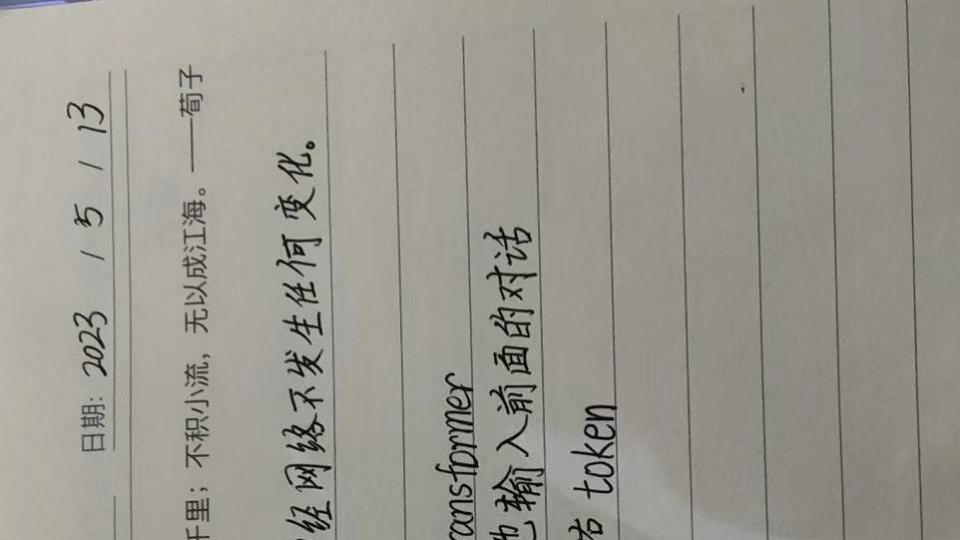 日期: 2023 / 5 / 13
千里；不积小流，无以成江海。——荀子
经网络不发生任何变化。
ansformer
输入前面的对话
token